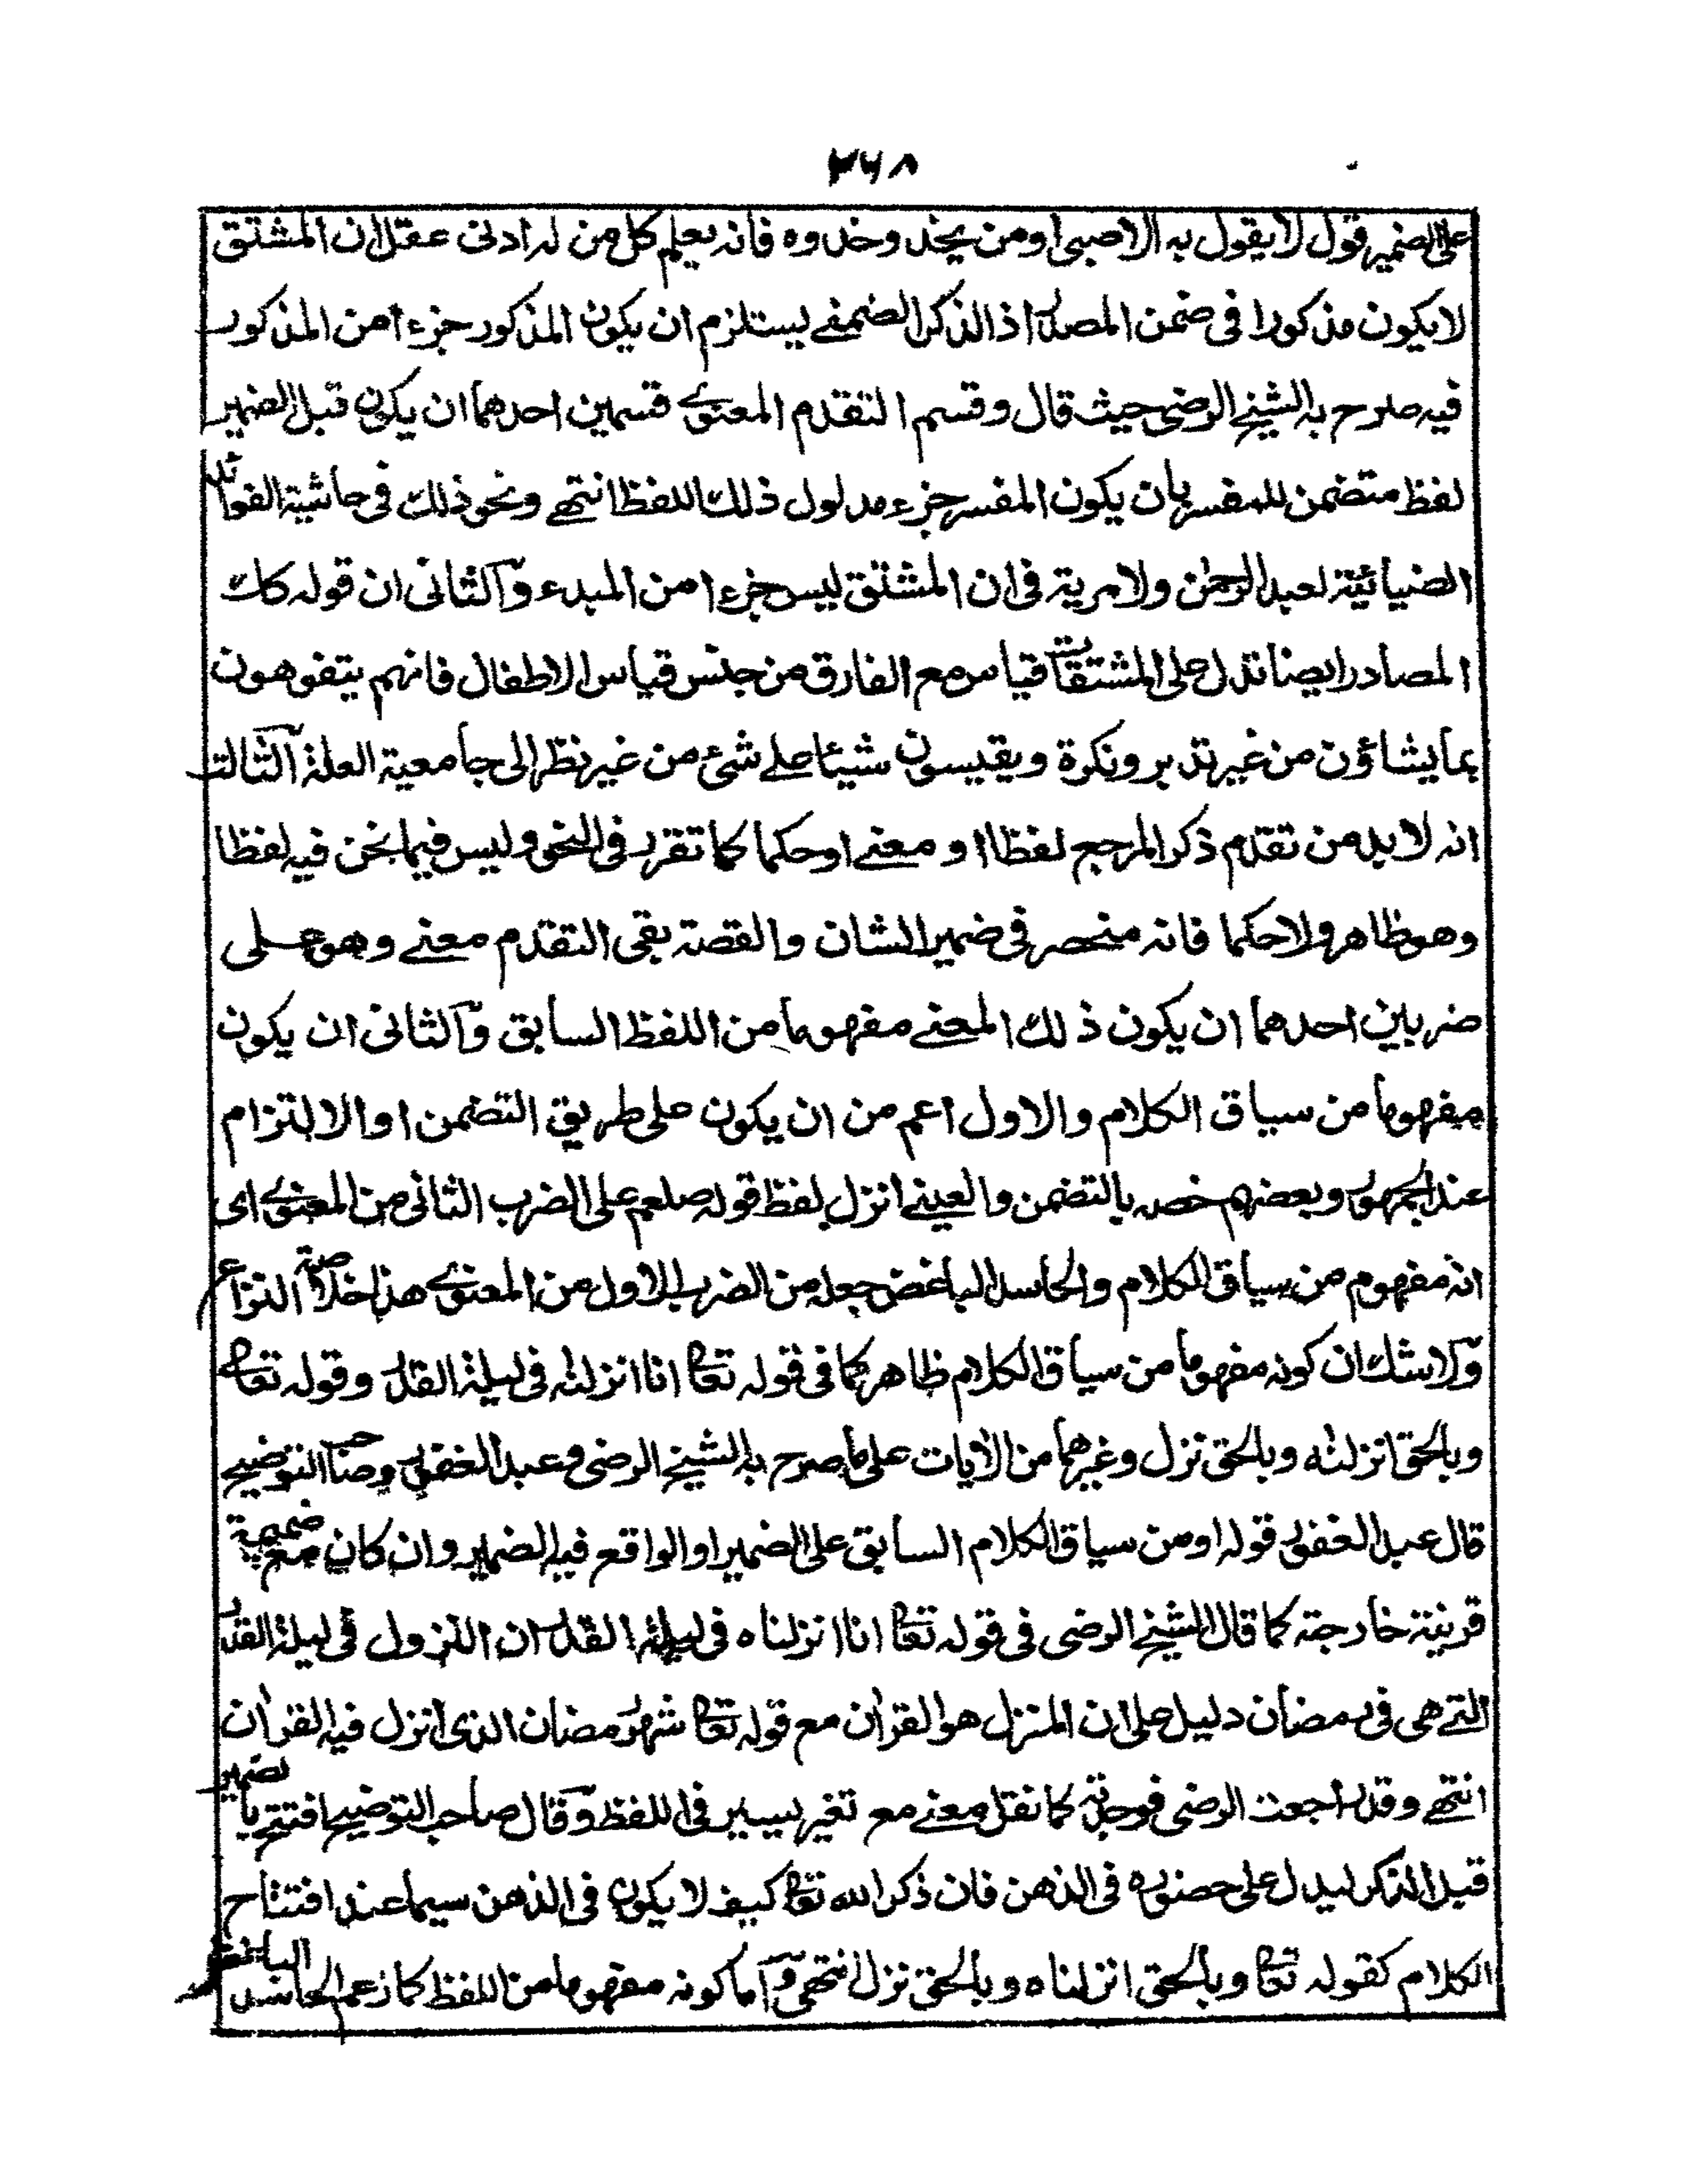 ۲۶۸
على الضمير قول لا يقول به الا صبى او من يحذ وحذوه فانه يعلم كل من له ادنى عقل ان المشتق
لا يكون مذكورا فى ضمن المصدر اذ الذكر الضمنے يستلزم ان يكون المذكور جزء امن المذكور
فيه صرح به الشيخ الرضى حيث قال وقسم التقدم المعنوے قسمين احدهما ان يكون قبل الضمير
لفظ متضمن للمفسر بان يكون المفسر جزء مدلول ذلك اللفظ انتهے ونحو ذلك فى حاشية الفوائد
الضيائية لعبد الرحمٰن ولا مرية فى ان المشتق ليس جزء امن المبدء وٓالثانى ان قوله كك
المصادر ايضا تدل على المشتقات قياس مع الفارق من جنس قياس الاطفال فانهم يتفوهون
بما يشاؤن من غير تدبر ونكرة ويقيسون شيئا علے شئ من غير نظر الى جامعية العلة الٓثالث
انه لا بد من تقدم ذكر المرجع لفظا او معنے او حكما كما تقرر فى النحو وليس فيما نحن فيه لفظا
وهو ظاهر ولا حكما فانه منحصر فى ضمير الشان والقصة بقى التقدم معنے وهو على
ضربين احدهما ان يكون ذلك المعنے مفهوما من اللفظ السابق وٓالثانى ان يكون
مفهوما من سياق الكلام والاول اعم من ان يكون على طريق التضمن او الالتزام
عند الجمهور وبعضهم خصه بالتضمن والعينے انزل لفظ قوله صلعم على الضرب الثانى من المعنوے اى
انه مفهوم من سياق الكلام والحاسد الباغض جعله من الضرب الاول من المعنوے هذا خلاصة النزاع
وٓلا شك ان كونه مفهوما من سياق الكلام ظاهر كما فى قوله تعا انا انزلنٰه فى ليلة القدر وقوله تعالے
وبالحق انزلنٰه وبالحق نزل وغيرهما من الاٰيات على ما صرح به الشيخ الرضى وعبد الغفور وصاحب التوضيح
قال عبد الغفور قوله او من سياق الكلام السابق على الضمير او الواقع فيه الضمير وان كان مع ضميمة
قرينة خارجة كما قال الشيخ الرضى فى قوله تعا انا انزلناه فى ليلة القدر ان النزول فى ليلة القدر
التے هى فى رمضان دليل على ان المنزل هو القراٰن مع قوله تعا شهر رمضان الذى انزل فيه القراٰن
انتهے وقد راجعت الرضى فوجدته كما نقل معنے مع تغير يسير فى اللفظ وٓقال صاحب التوضيح افتتح بالضمير
قبل الذكر ليدل على حضوره فى الذهن فان ذكر الله تعا كيف لا يكون فى الذهن سيما عند افتتاح
الكلام كقوله تعا وبالحق انزلناه وبالحق نزل انتهى وٓاما كونه مفهوما من اللفظ كما زعم الحاسد الباغض